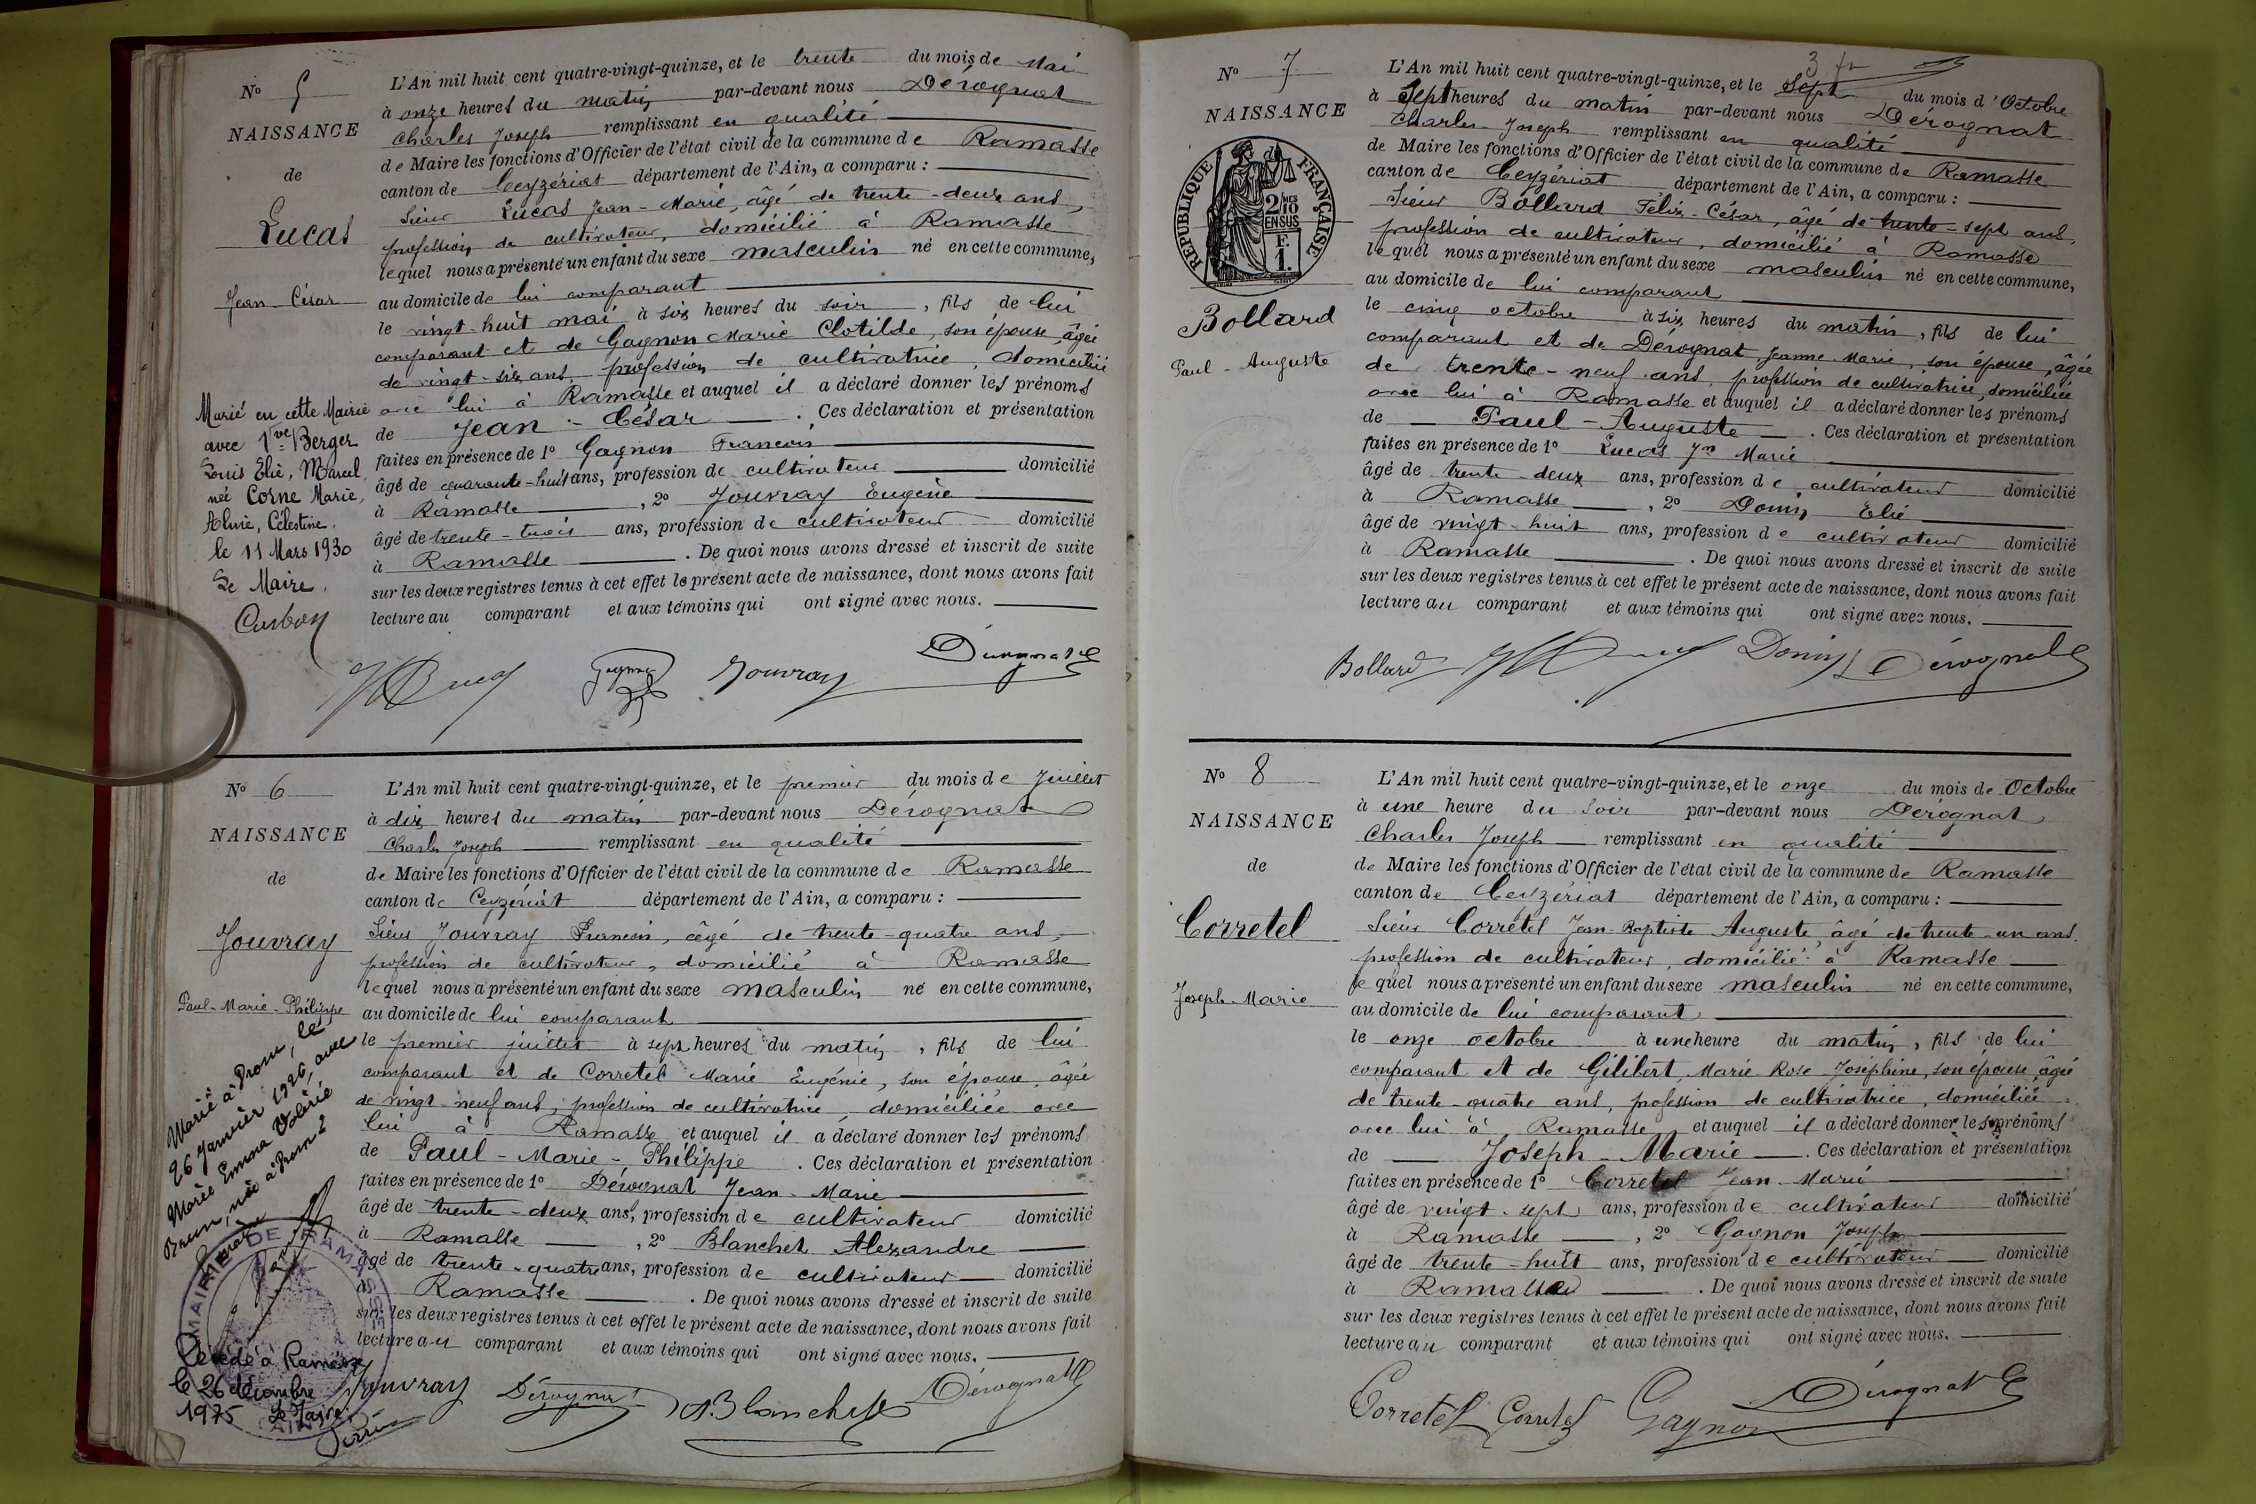 No 5
NAISSANCE
de
Lucas
Jean - César
Marié en cette Mairie
avec Vve Berger
Louis Elie, Marcel
née Corne Marie,
Alure, Célestine.
le 11 Mars 1930
Le Maire.
L'An mil huit cent quatre-vingt-quinze, et le trente du mois de Mai
à onze heures du matin par-devant nous Dérognat
Charles Joseph remplissant en qualité
de Maire les fonctions d'Officier de l'état civil de la commune de Ramasse
canton de Ceyzériat département de l'Ain, a comparu :
Sieur Lucas Jean - Marie, âgé de trente - deux ans,
profession de cultivateur, domicilié à Ramasse
lequel nous a présenté un enfant du sexe masculin né en cette commune,
au domicile de lui comparant
le vingt-huit mai à six heures du soir, fils de lui
comparant et de Gagnon Marie Clotilde, son épouse, âgée
de vingt-six ans, profession de cultivatrice, domiciliée
avec lui à Ramasse et auquel il a déclaré donner les prénoms
de Jean - César. Ces déclaration et présentation
faites en présence de 1° Gagnon Francois
âgé de quarante-huit ans, profession de cultivateur domicilié
à Ramasse, 2° Jouvray Eugène
âgé de trente-trois ans, profession de cultivateur domicilié
à Ramasse. De quoi nous avons dressé et inscrit de suite
sur les deux registres tenus à cet effet le présent acte de naissance, dont nous avons fait
lecture au comparant et aux témoins qui ont signé avec nous.
Gagnon Jouvray Dérognat
No 6
NAISSANCE
de
Jouvray
Paul - Marie - Philippe
Marié à Drom, le
26 Janvier 1926, avec
Marie Emma Valérie
Brun, née à Drom
MAIRIE DE RAMASSE
AIN
Décédé à Ramasse
le 26 décembre
1975 Le Maire:
L'An mil huit cent quatre-vingt-quinze, et le premier du mois de Juillet
à dix heures du matin par-devant nous Dérognat
Charles Joseph remplissant en qualité
de Maire les fonctions d'Officier de l'état civil de la commune de Ramasse
canton de Ceyzériat département de l'Ain, a comparu :
Sieur Jouvray Francois, âgé de trente-quatre ans,
profession de cultivateur, domicilié à Ramasse
lequel nous a présenté un enfant du sexe masculin né en cette commune,
au domicile de lui comparant
le premier juillet à sept heures du matin, fils de lui
comparant et de Corretel Marie Eugénie, son épouse, âgée
de vingt-neuf ans, profession de cultivatrice, domiciliée avec
lui à Ramasse et auquel il a déclaré donner les prénoms
de Paul - Marie - Philippe. Ces déclaration et présentation
faites en présence de 1° Dérognat Jean - Marie
âgé de trente - deux ans, profession de cultivateur domicilié
à Ramasse, 2° Blanchet Alexandre
âgé de trente-quatre ans, profession de cultivateur domicilié
à Ramasse. De quoi nous avons dressé et inscrit de suite
sur les deux registres tenus à cet effet le présent acte de naissance, dont nous avons fait
lecture au comparant et aux témoins qui ont signé avec nous.
Jouvray Dérognat A. Blanchet Dérognat
No 7
NAISSANCE
RÉPUBLIQUE FRANÇAISE
2/10 EN SUS
F. 1.
Bollard
Paul - Auguste
L'An mil huit cent quatre-vingt-quinze, et le Sept du mois d'Octobre
à Sept heures du matin par-devant nous Dérognat
Charles - Joseph remplissant en qualité
de Maire les fonctions d'Officier de l'état civil de la commune de Ramasse
canton de Ceyzériat département de l'Ain, a comparu :
Sieur Bollard Félix - César, âgé de trente-sept ans,
profession de cultivateur, domicilié à Ramasse
lequel nous a présenté un enfant du sexe masculin né en cette commune,
au domicile de lui comparant
le cinq octobre à six heures du matin, fils de lui
comparant et de Dérognat Jeanne Marie, son épouse, âgée
de trente-neuf ans, profession de cultivatrice, domiciliée
avec lui à Ramasse et auquel il a déclaré donner les prénoms
de Paul - Auguste. Ces déclaration et présentation
faites en présence de 1° Lucas Jn Marie
âgé de trente-deux ans, profession de cultivateur domicilié
à Ramasse, 2° Donin Elie
âgé de vingt-huit ans, profession de cultivateur domicilié
à Ramasse. De quoi nous avons dressé et inscrit de suite
sur les deux registres tenus à cet effet le présent acte de naissance, dont nous avons fait
lecture au comparant et aux témoins qui ont signé avec nous.
Bollard Donin Dérognat
No 8
NAISSANCE
de
Corretel
Joseph - Marie
L'An mil huit cent quatre-vingt-quinze, et le onze du mois de Octobre
à une heure du soir par-devant nous Dérognat
Charles Joseph remplissant en qualité
de Maire les fonctions d'Officier de l'état civil de la commune de Ramasse
canton de Ceyzériat département de l'Ain, a comparu :
Sieur Corretel Jean-Baptiste Auguste, âgé de trente-un ans.
profession de cultivateur, domicilié à Ramasse
lequel nous a présenté un enfant du sexe masculin né en cette commune,
au domicile de lui comparant
le onze octobre à une heure du matin, fils de lui
comparant et de Gilibert Marie Rose Joséphine, son épouse, âgée
de trente-quatre ans, profession de cultivatrice, domiciliée
avec lui à Ramasse et auquel il a déclaré donner les prénoms
de Joseph - Marie. Ces déclaration et présentation
faites en présence de 1° Corretel Jean-Marie
âgé de vingt-sept ans, profession de cultivateur domicilié
à Ramasse, 2° Gagnon Joseph
âgé de trente-huit ans, profession de cultivateur domicilié
à Ramasse. De quoi nous avons dressé et inscrit de suite
sur les deux registres tenus à cet effet le présent acte de naissance, dont nous avons fait
lecture au comparant et aux témoins qui ont signé avec nous.
Corretel Corretel Gagnon Dérognat